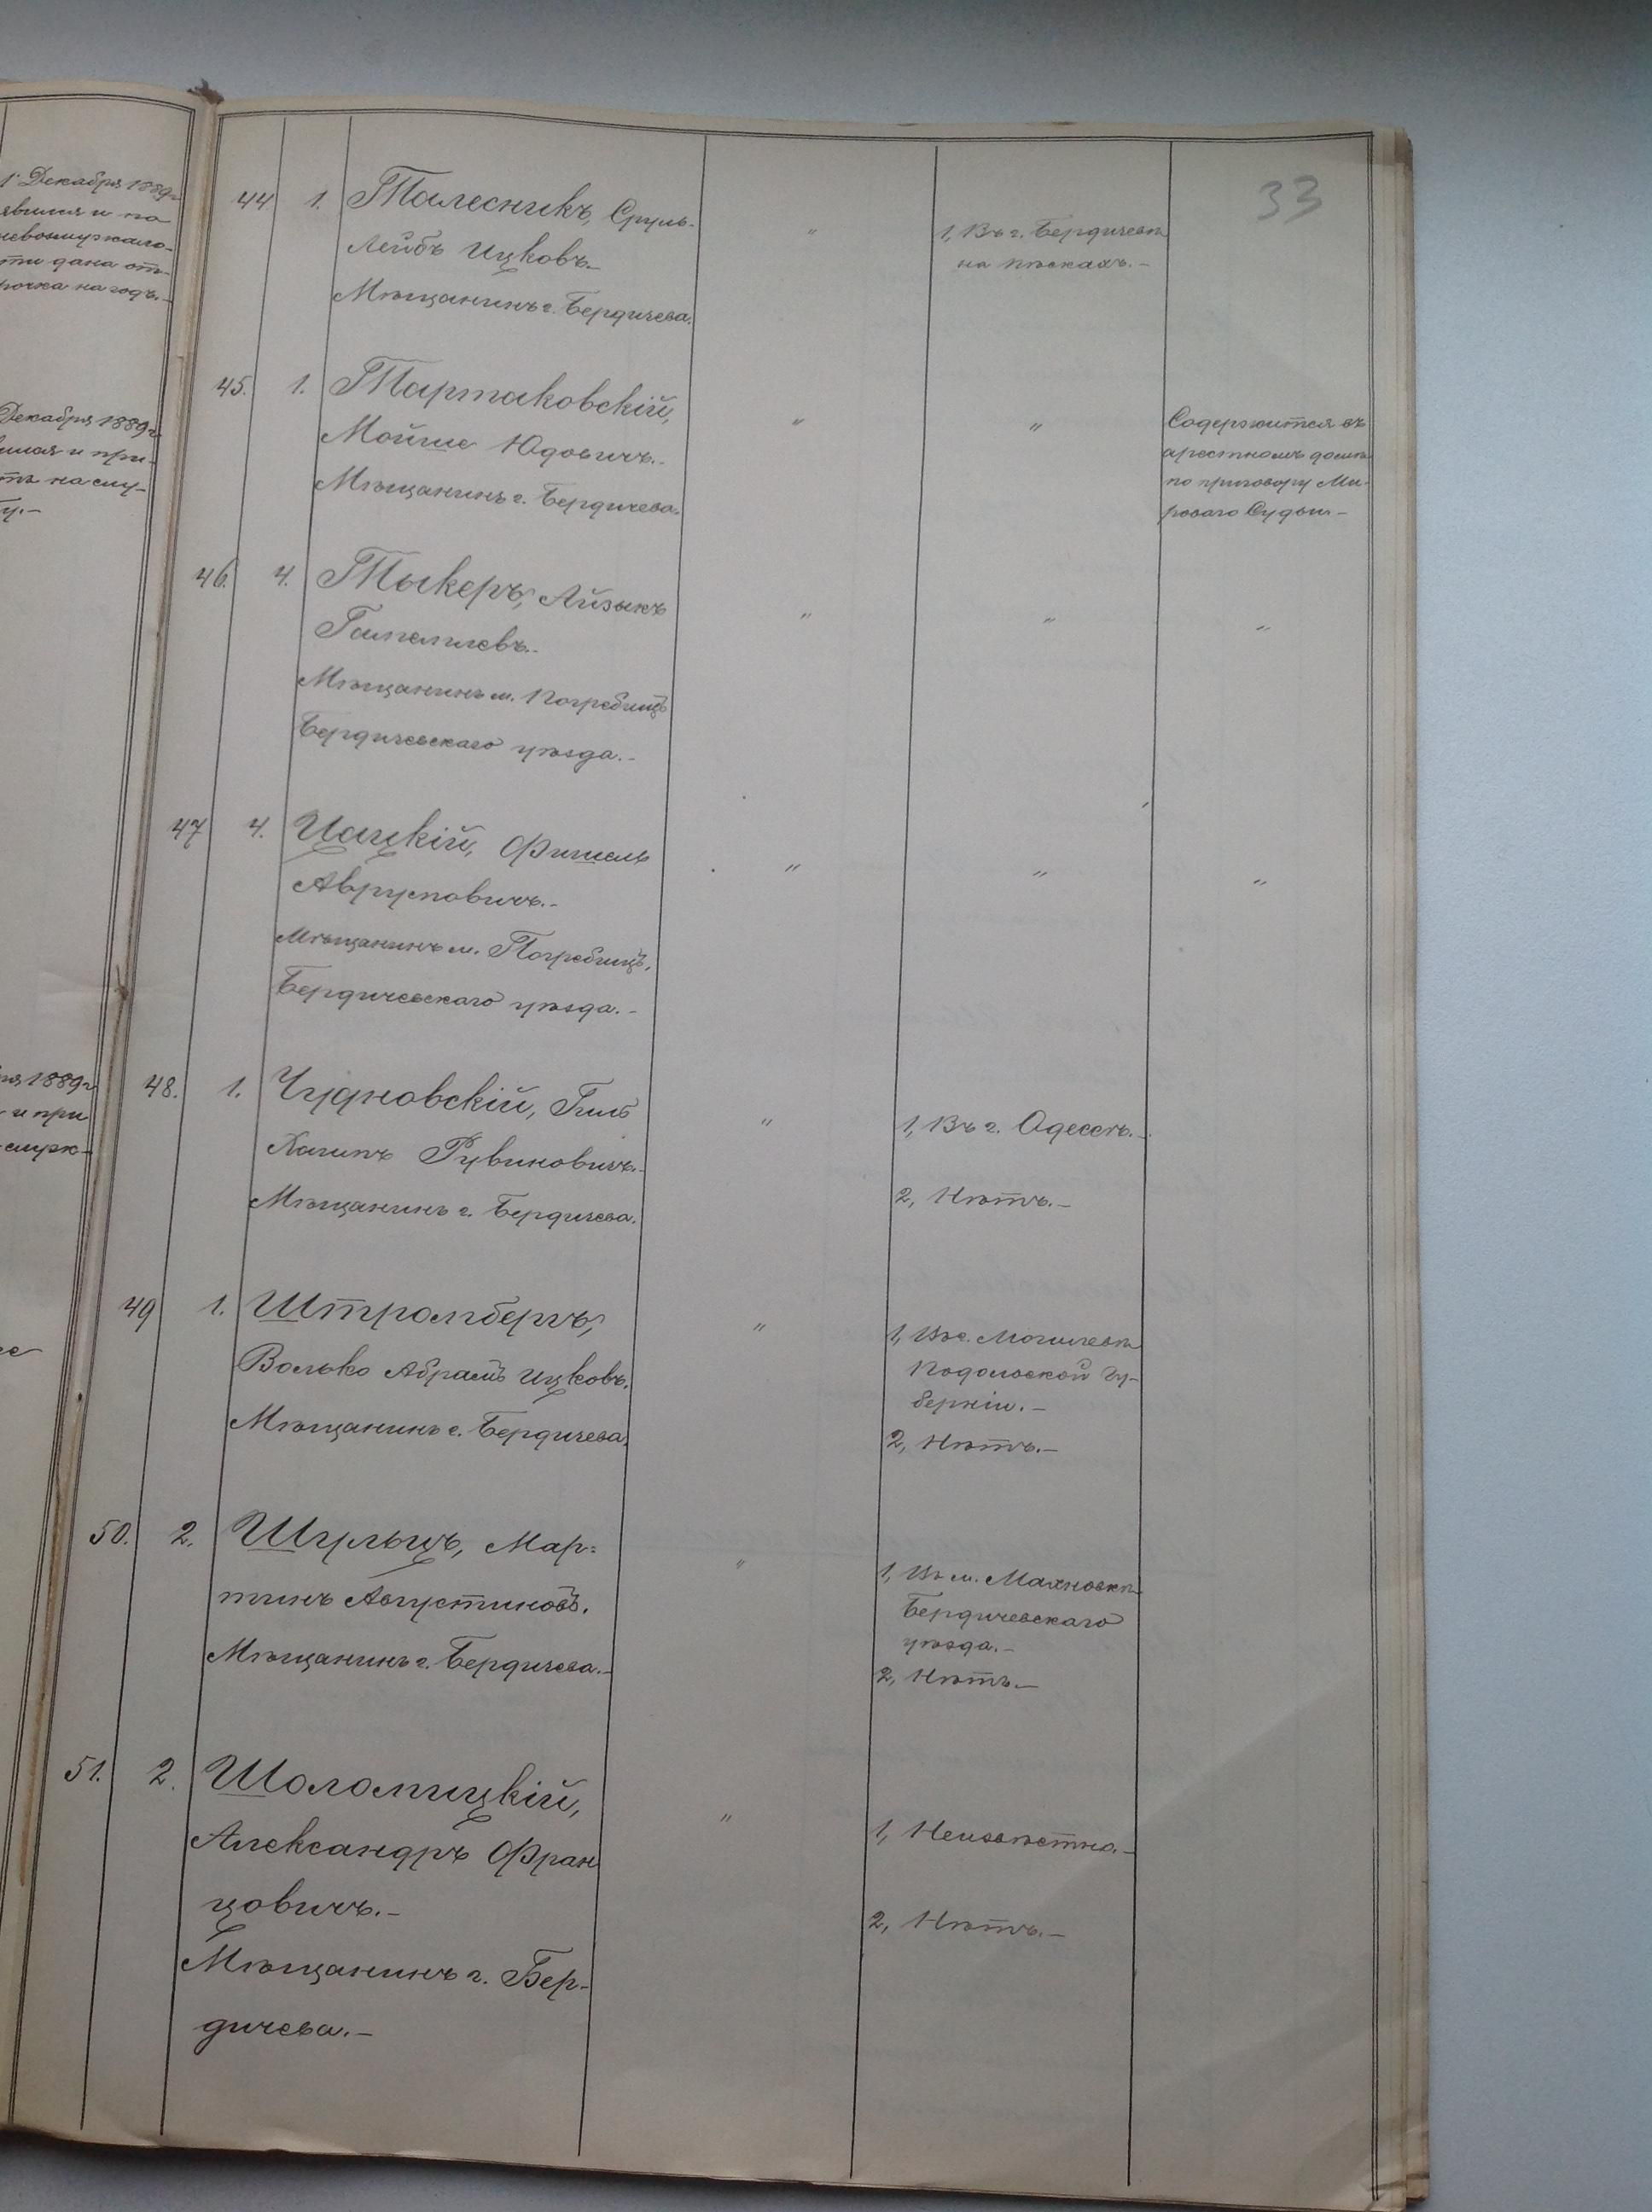 33
1 Декабря 1889 г.
явился и по
невозмужало-
сти дана от-
рочка на годъ.-
Декабря 1889 г.
и при-
на слу-
1889 г.
и при
служ-
44 1. Талесникъ, Сруль-
Лейбъ Ицковъ.-
Мѣщанинъ г. Бердичева.
" 1, Въ г. Бердичевѣ
на пѣскахъ.-
45. 1. Тартаковскій,
Мойше Юдовичъ.-
Мѣщанинъ г. Бердичева.
" " Содержится въ
арестномъ домѣ
по приговору Ми-
роваго Судьи-
46. 4. Тыкеръ, Айзыкъ
Мѣщанинъ м. Погребищъ
Бердичевскаго уѣзда.-
" " "
47 4. Цацкій, Фишель
Аврумовичъ.-
Мѣщанинъ м. Погребищъ,
Бердичевскаго уѣзда.-
" " "
48. 1. Чудновскій, Гиль
Хаимъ Рувиновичъ.-
Мѣщанинъ г. Бердичева.
" 1, Въ г. Одессѣ.-
2, Нѣтъ.-
49 1. Штромбергъ,
Волько Абрамъ Ицковъ.
Мѣщанинъ г. Бердичева.
" 1, Въ г. Могилевѣ
Подольской Гу-
берніи.-
2, Нѣтъ.-
50. 2. Шульцъ, Мар-
тинъ Августиновъ.
Мѣщанинъ г. Бердичева.-
" 1, Въ м. Махновкѣ
Бердичевскаго
уѣзда.-
2, Нѣтъ.-
51. 2. Шоломицкій,
Александръ Фран
цовичъ.-
Мѣщанинъ г. Бер-
дичева.-
" 1, Неизвѣстно.-
2, Нѣтъ.-